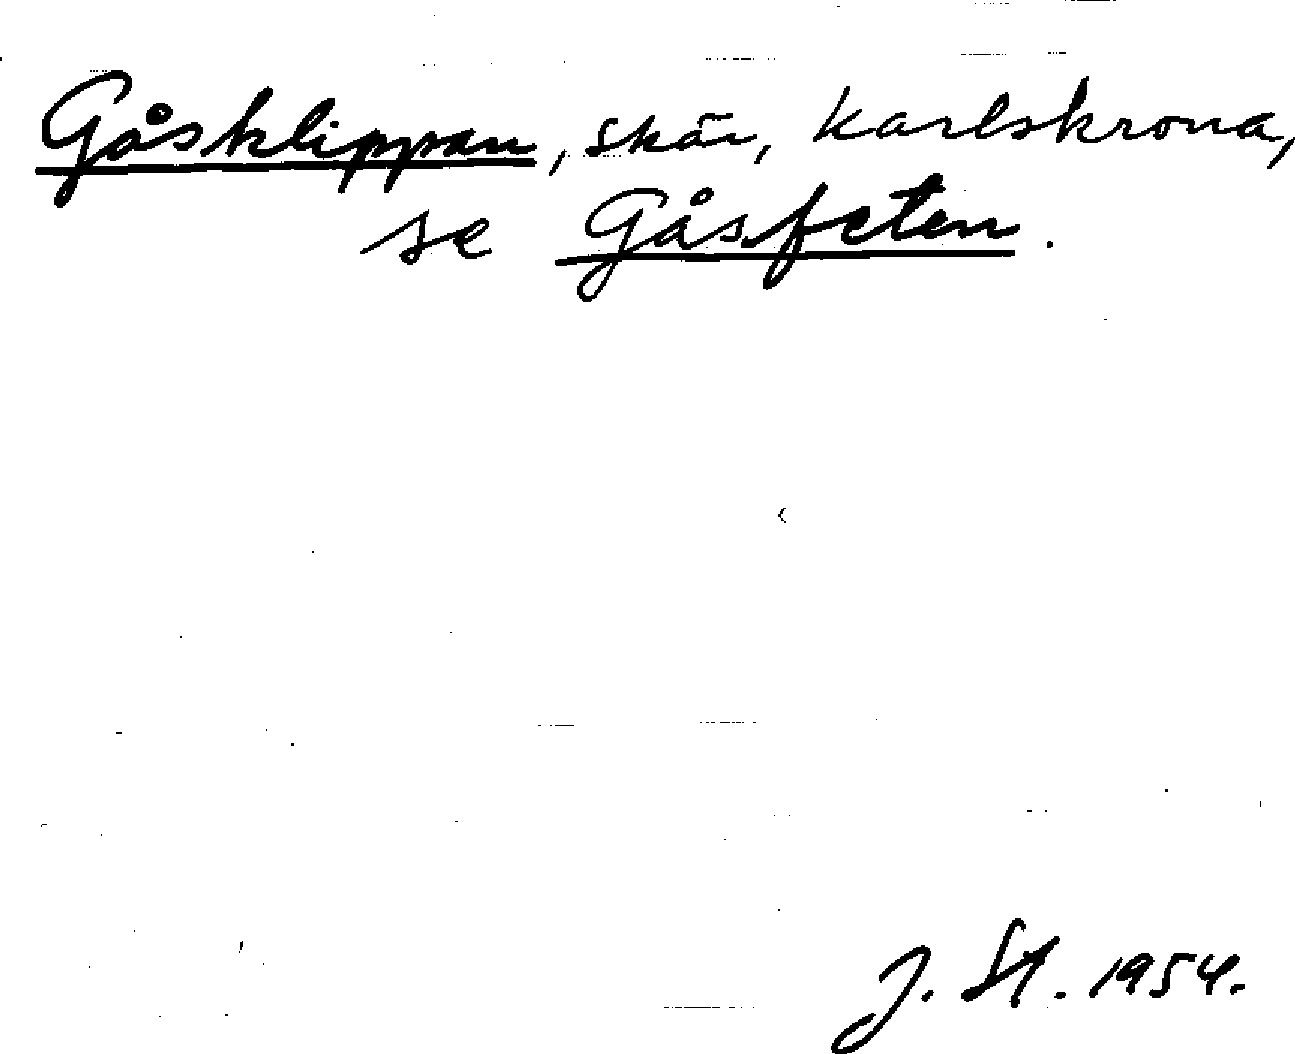 Gåsklippan, skär, Karlskrona,
se Gåsfeten.
J. St. 1954.